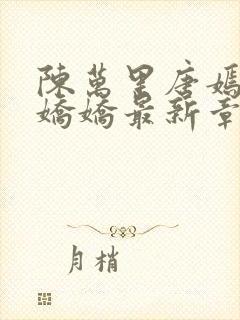 陳萬里唐嫣
嬌嬌最新章
月梢